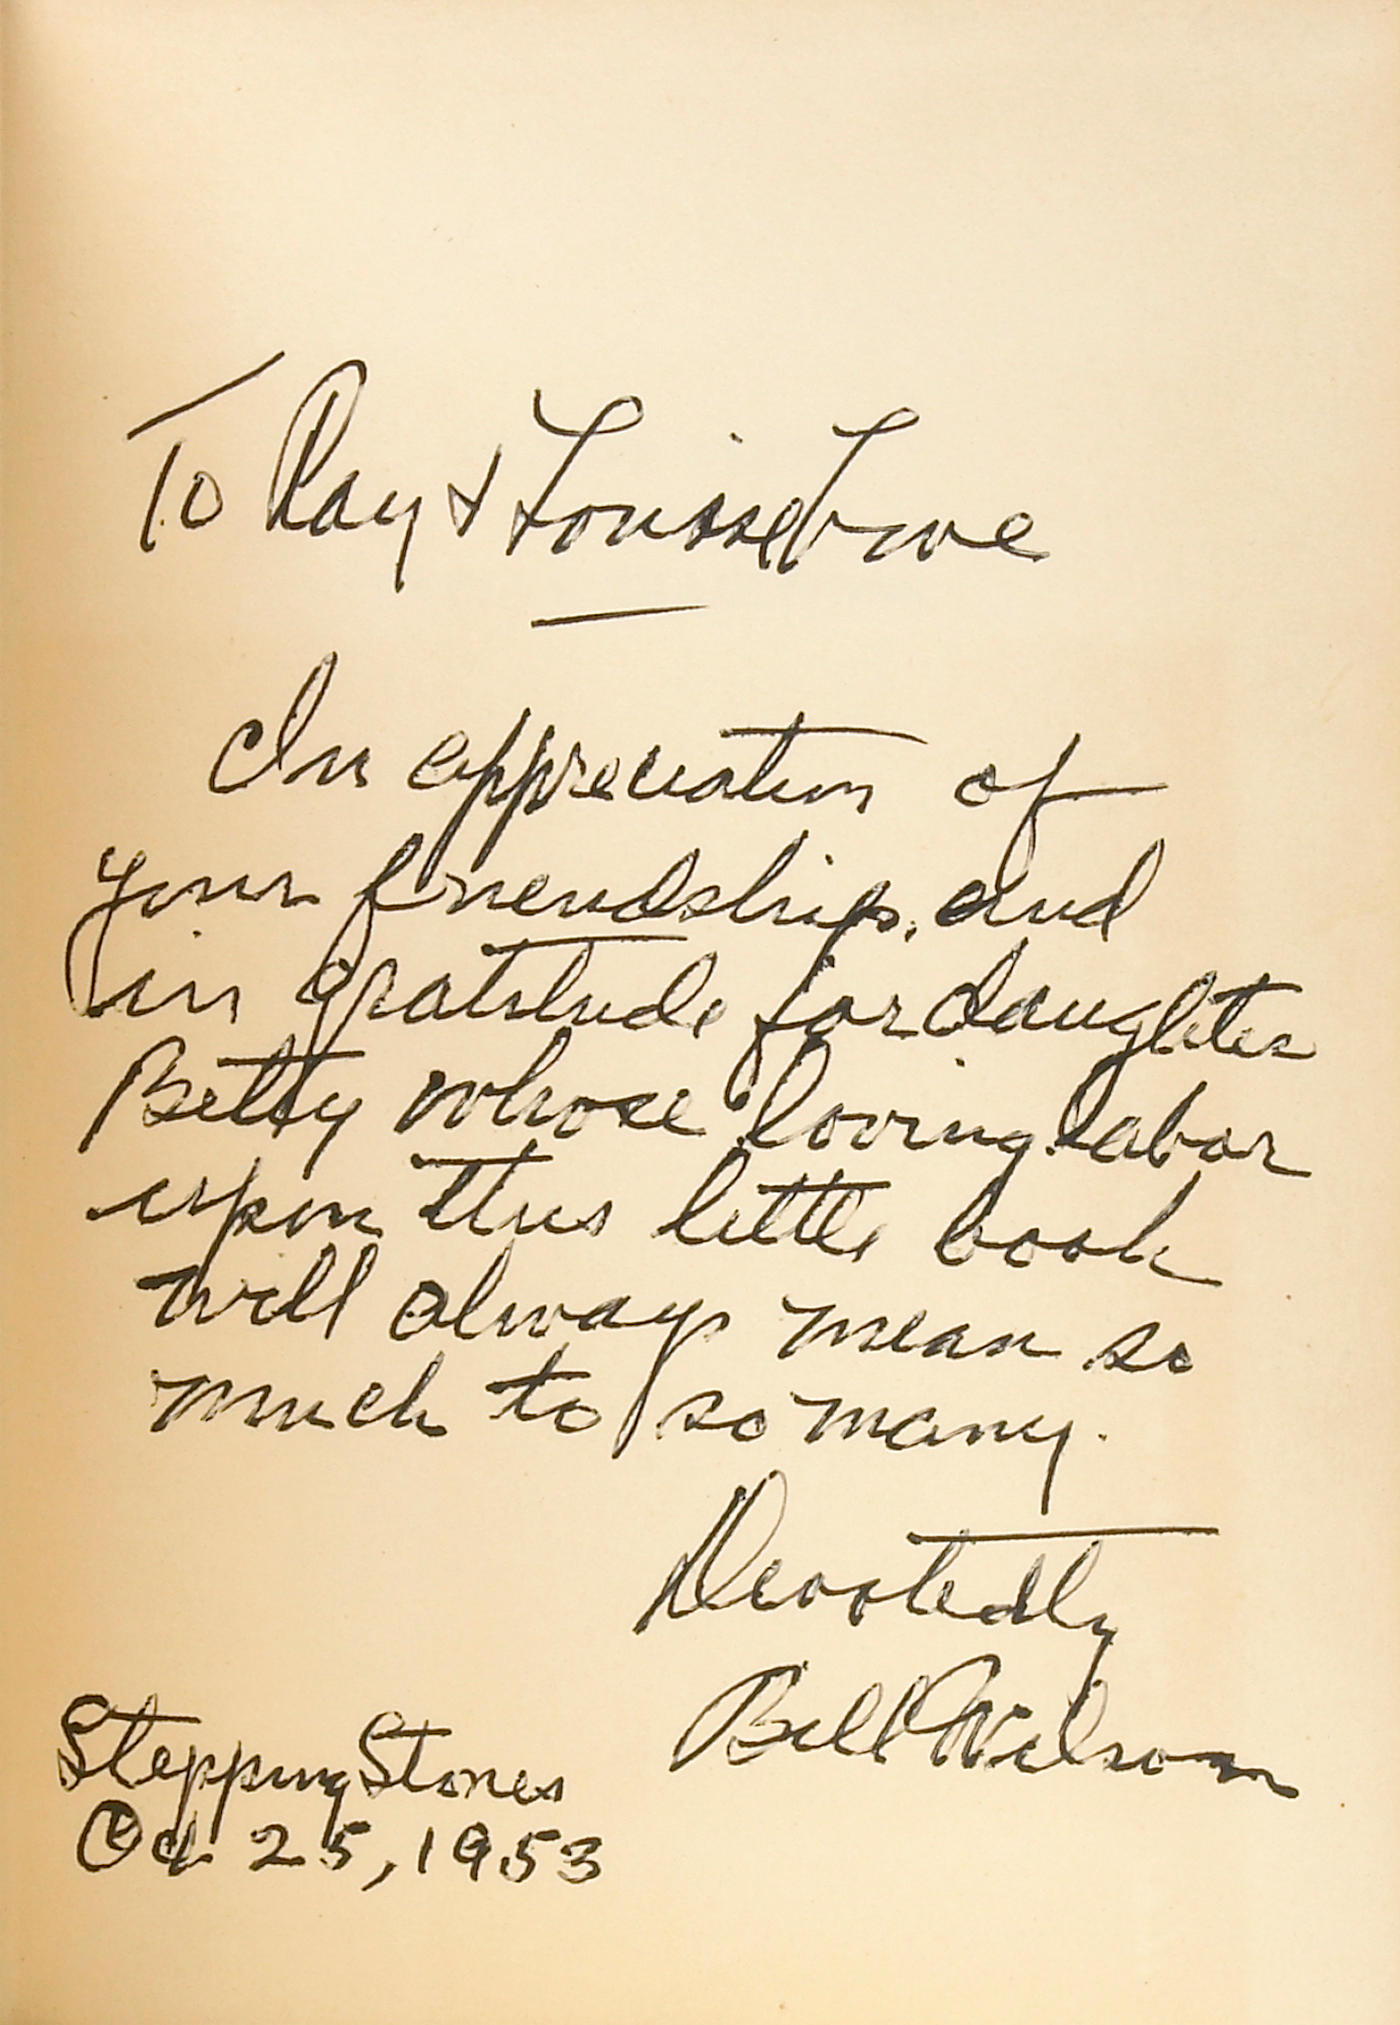 To Ray & Louise Love
In appreciation of
your friendship, and
in gratitude for daughter
Betty whose loving labor
upon this little book
will always mean so
much to so many.
Devotedly
Bill Wilson
Stepping Stones
Oct 25, 1953